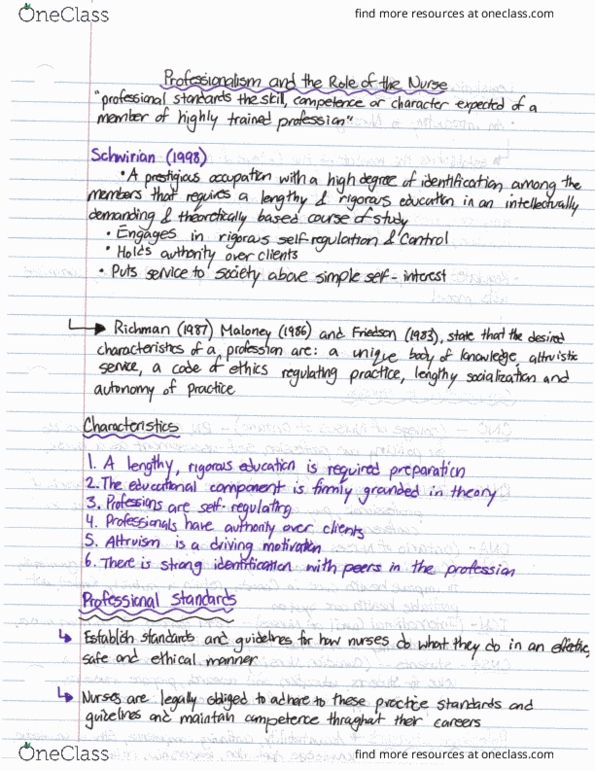 OneClass
find more resources at oneclass.com
Professionalism and the Role of the Nurse
"professional standards the skill, competence or character expected of a
member of highly trained profession"
Schwirian (1998)
• A prestigious occupation with a high degree of identification among the
members that requires a lengthy & rigorous education in an intellectually
demanding & theoretically based course of study
• Engages in rigorous self-regulation & control
• Holds authority over clients
• Puts service to society above simple self-interest
Richman (1987) Maloney (1986) and Friedson (1983), state that the desired
characteristics of a profession are: a unique body of knowledge, altruistic
service, a code of ethics regulating practice, lengthy socialization and
autonomy of practice
Characteristics
1. A lengthy, rigorous education is required preparation
2. The educational component is firmly grounded in theory
3. Professions are self-regulating
4. Professionals have authority over clients
5. Altruism is a driving motivation
6. There is strong identification with peers in the profession
Professional Standards
↳ Establish standards and guidelines for how nurses do what they do in an effective,
safe and ethical manner
↳ Nurses are legally obliged to adhere to these practice standards and
guidelines and maintain competence throughout their careers
OneClass
find more resources at oneclass.com